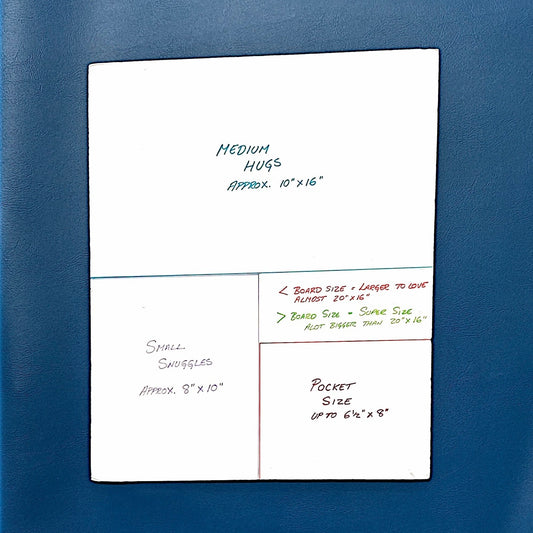 MEDIUM
HUGS
APPROX. 10" X 16"
< BOARD SIZE = LARGER TO LOVE
ALMOST 20" X 16"
> BOARD SIZE = SUPER SIZE
ALOT BIGGER THAN 20" X 16"
SMALL
SNUGGLES
APPROX. 8" X 10"
POCKET
SIZE
UP TO 6½" X 8"